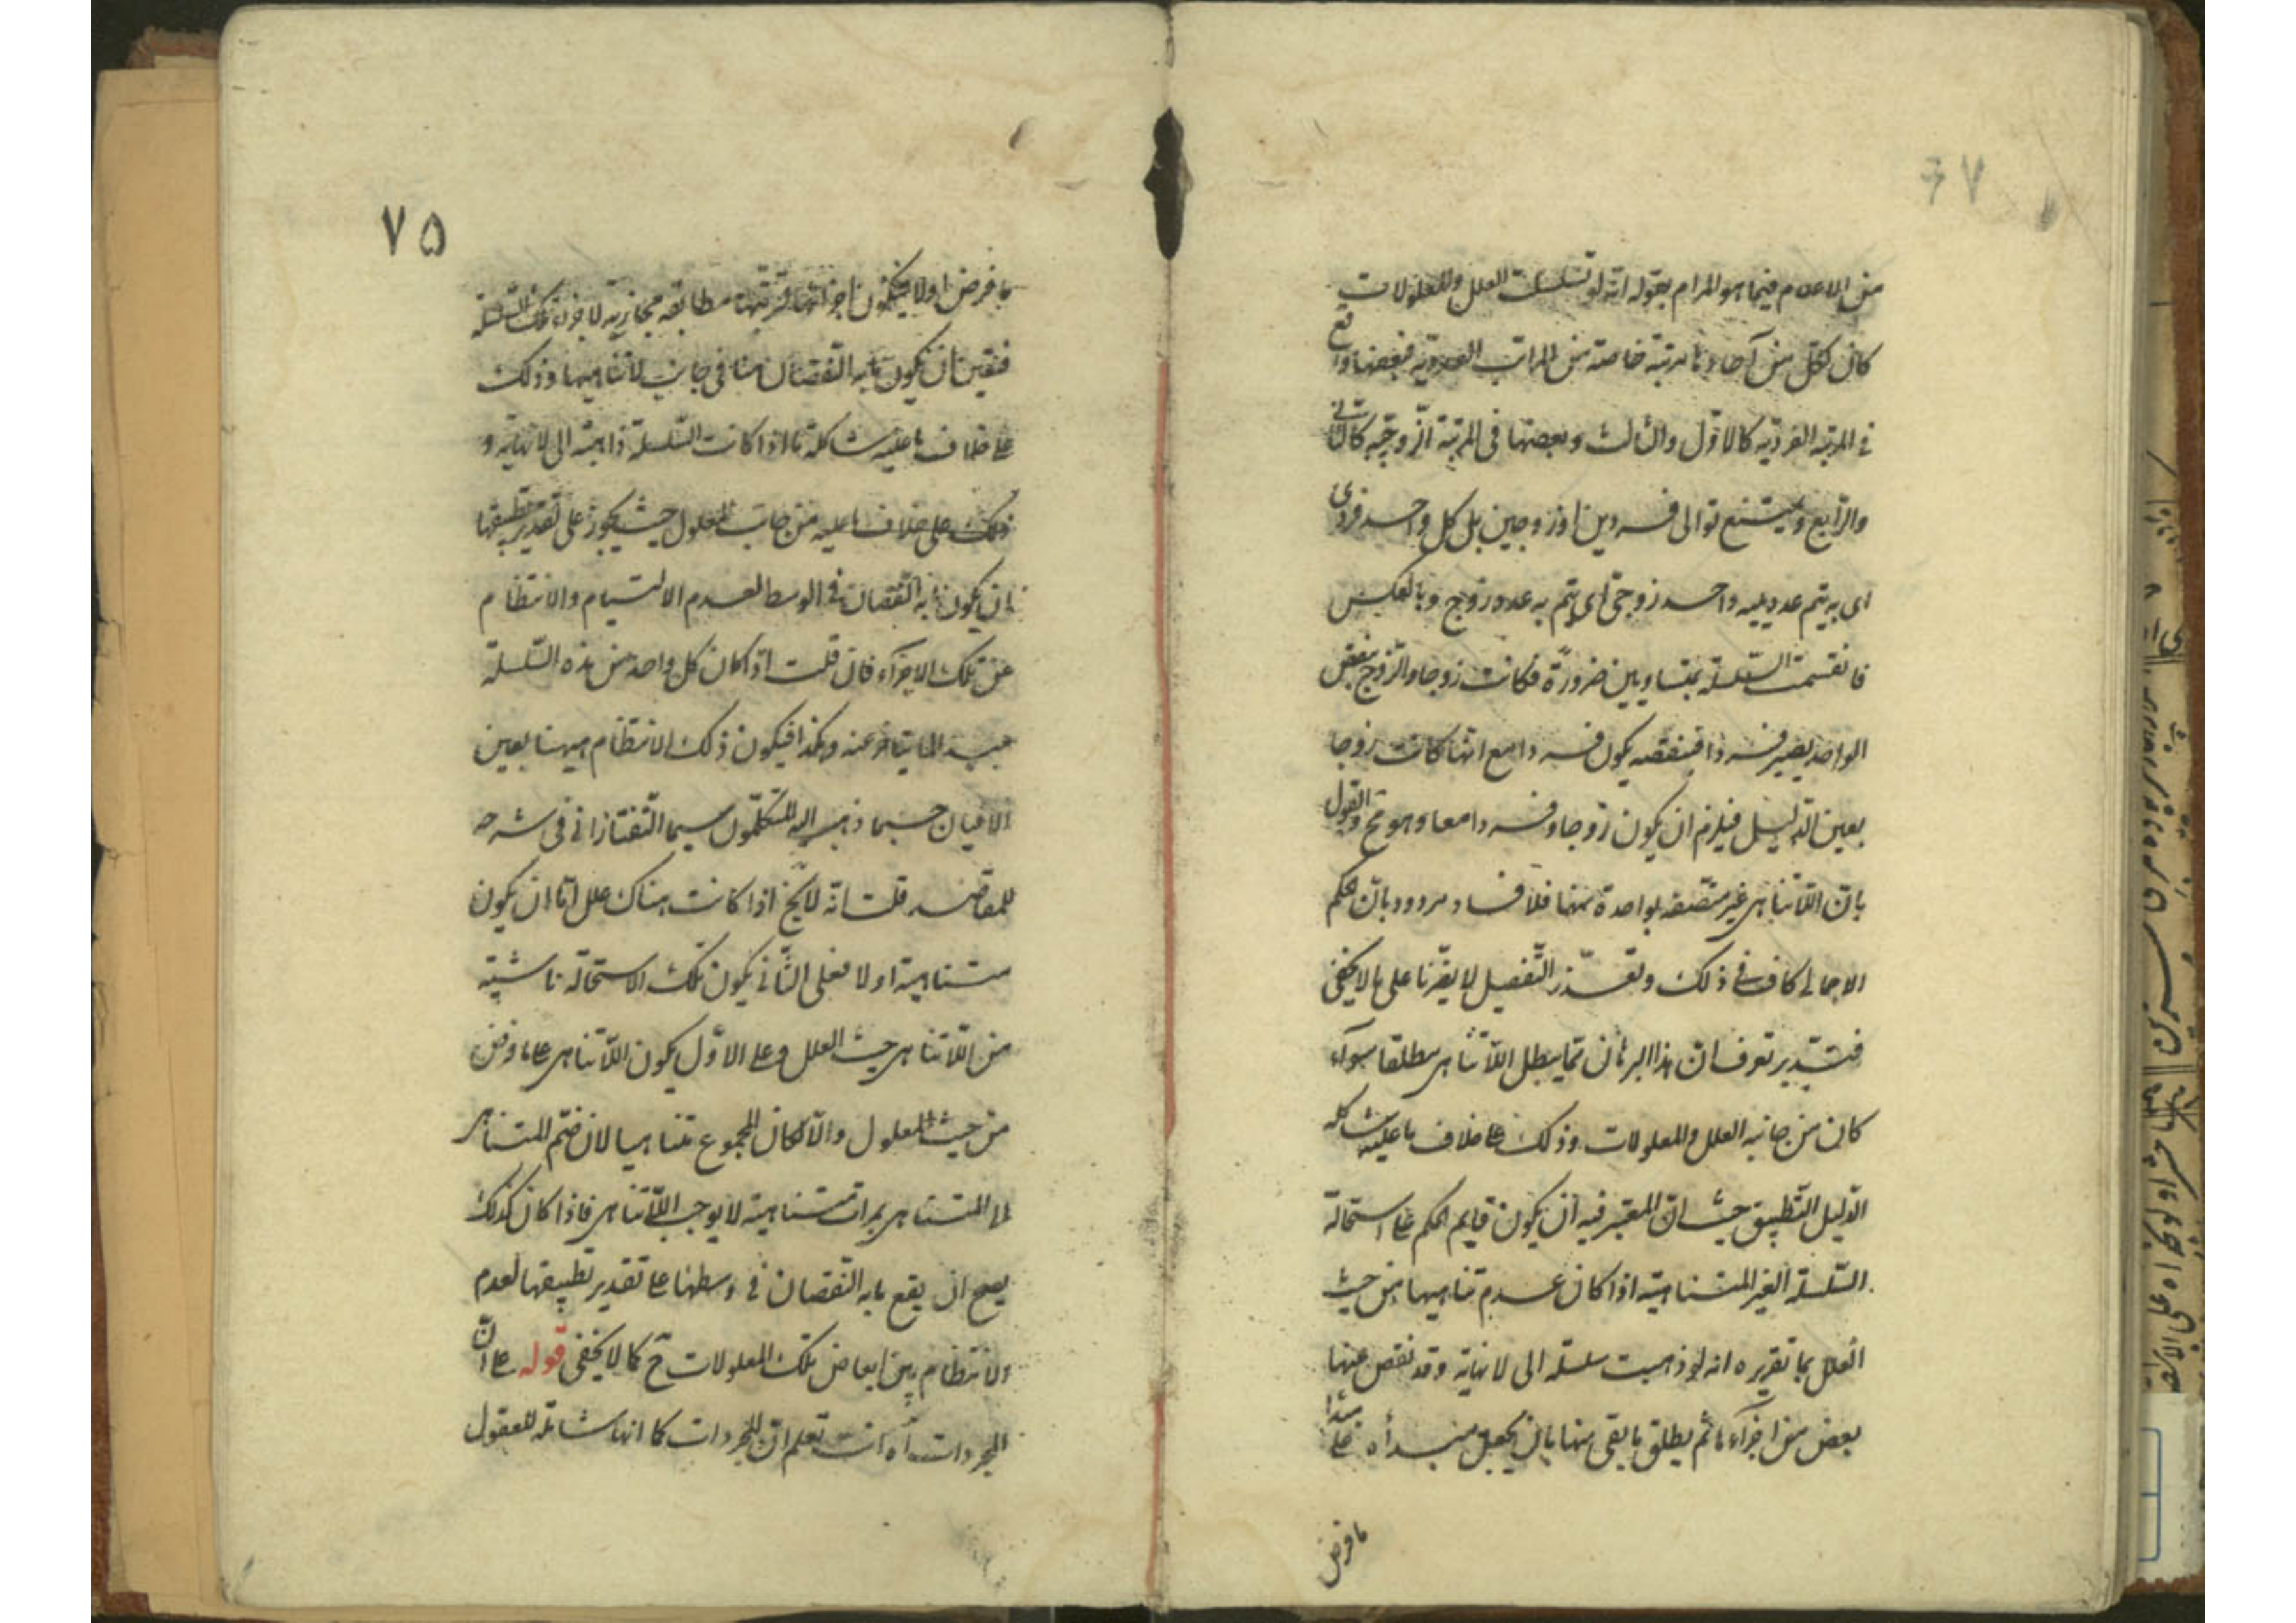 من الاعلام فيما هو المرام بقوله انه لو تسلسلت العلل والمعلولات
كان لكل من آحادها مرتبة خاصة من المراتب العددية فبعضها واقع
في المرتبة الفردية كالاول والثالث وبعضها في المرتبة الزوجية كالثاني
والرابع ويمتنع توالى فردين او زوجين بل كل واحد فردى
اى به يتم عدد يليه واحد زوجى اى يتم به عدد زوج وبالعكس
فانقسمت السلسلة بمتساويين ضرورة فكانت زوجا والزوج بنقص
الواحد يصير فردا فبنقصه يكون فردا مع انها كانت زوجا
بعين الدليل فيلزم ان يكون زوجا وفردا معا وهو مح والقول
بان اللاتناهى غير متصفه بواحدة منهما فلا فساد مردود بان الحكم
الاجمالى كاف في ذلك وتعذر التفصيل لا يضرنا على ما لا يخفى
فتدبر تعرف ان هذا البرهان مما يبطل اللاتناهى مطلقا سواء
كان من جانبه العلل والمعلولات وذلك على خلاف ما عليه شاكلة
الدليل التطبيق حيث ان المعتبر فيه ان يكون قايم الحكم على استحالة
السلسلة الغير المتناهية اذا كان عدم تناهيها من حيث
العلل بما تقريره انه لو ذهبت سلسلة الى لا نهاية وقد نقص عنها
بعض من اجزاء ها ثم يطلق ما بقى منها بان يجعل مبدأه على مبدأ
ما فرض
٧٥
ما فرض اولا فيكون اجزائها مترتبة مطابقه محاذية لاجزاء تلك السلسلة
فتعين ان يكون ما به النقصان منا في جانب لا تناهيها وذلك
على خلاف ما عليه شاكلة ما اذا كانت السلسلة ذاهبة الى لا نهاية و
ذلك على خلاف ما عليه من جانب المعلول حيث يجوز على تقدير تطبيقها
ان يكون ما به النقصان في الوسط لعدم الالتيام والانتظام
عن تلك الاجزاء فان قلت اذ كان كل واحد من هذه السلسلة
مبدء لما يتاخر عنه وهكذا فيكون ذلك الانتظام ميهنا بعين
الاعيان حسبما ذهب اليه المتكلمون سيما التفتازانى في شرحه
للمقاصد قلت انه لا يخ اذا كانت هناك علل اما ان يكون
متناهية او لا فعلى الثانى يكون تلك الاستحالة ناشية
من اللاتناهى حيث العلل وعلى الاول يكون اللاتناهى على ما فرض
من حيث المعلول والا لكان المجموع متناهيا لان ضم المتناهى
الى المتناهى بمرات متناهية لا يوجب اللاتناهى فاذا كان كذلك
يصح ان يقع ما به النقصان في وسطها على تقدير تطبيقها لعدم
الانتظام بين ابعاض تلك المعلولات ح كما لا يخفى قوله على ان
المجردات آه انت تعلم ان المجردات كما انها شاملة للعقول